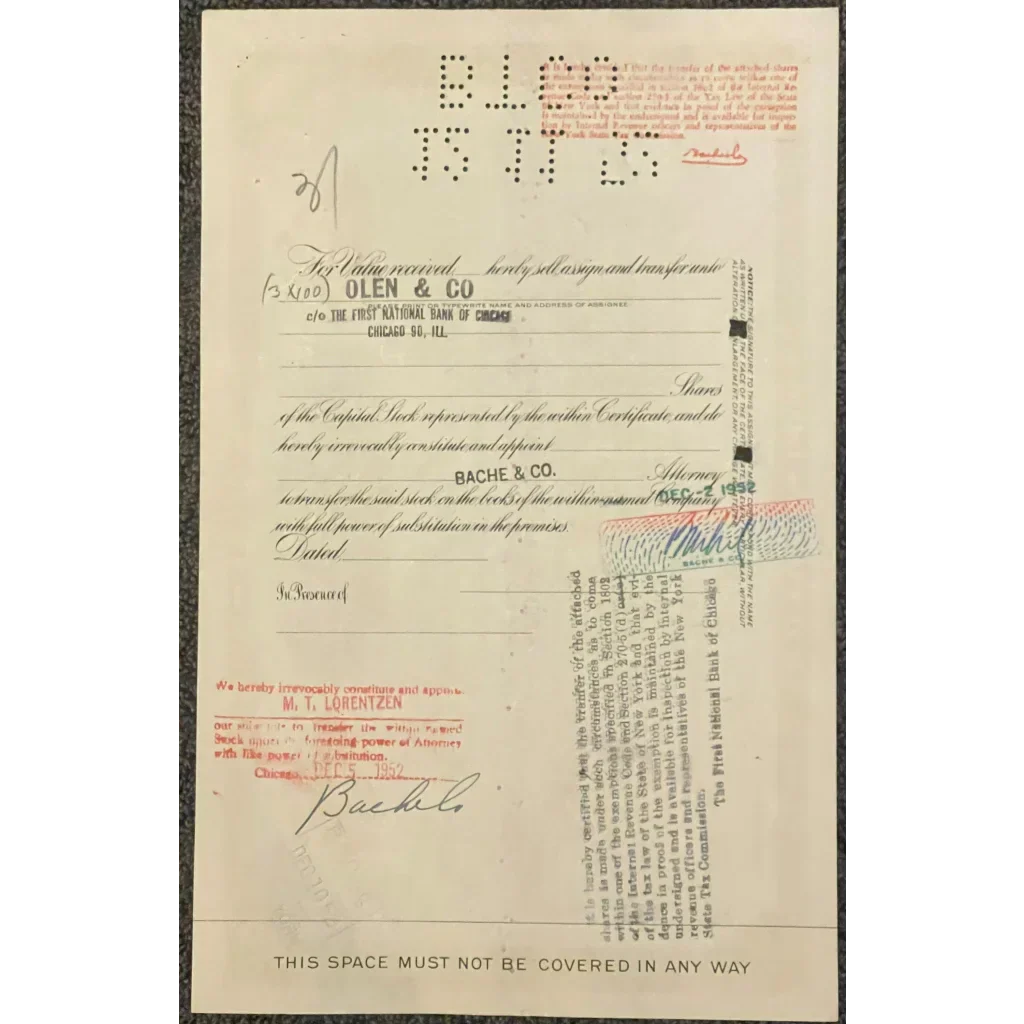 It is hereby certified that the transfer of the attached shares
is made under such circumstances as to come within one of
the exemptions specified in section 1802 of the Internal Re-
venue Code and section 270-5 of the Tax Law of the State
of New York and that evidence in proof of the exemption
is maintained by the undersigned and is available for inspec-
tion by Internal Revenue officers and representatives of the
New York State Tax Commission.
For Value received hereby sell, assign and transfer unto
(3 x 100) OLEN & CO
PLEASE PRINT OR TYPEWRITE NAME AND ADDRESS OF ASSIGNEE
c/o THE FIRST NATIONAL BANK OF CHICAGO
CHICAGO 90, ILL.
Shares
of the Capital Stock represented by the within Certificate, and do
hereby irrevocably constitute and appoint
BACHE & CO. Attorney
to transfer the said stock on the books of the within-named Company
with full power of substitution in the premises.
DEC -2 1952
Dated,
BACHE & CO
In Presence of
NOTICE: THE SIGNATURE TO THIS ASSIGNMENT MUST CORRESPOND WITH THE NAME
AS WRITTEN UPON THE FACE OF THE CERTIFICATE, IN EVERY PARTICULAR, WITHOUT
ALTERATION OR ENLARGEMENT, OR ANY CHANGE WHATEVER.
It is hereby certified that the tranfer of the attached
shares is made under such circumstances as to come
within one of the exemptions specified in Section 1802
of the Internal Revenue Code and Section 270-5(d) or(e)
of the tax law of the State of New York and that evi-
dence in proof of the exemption is maintained by the
undersigned and is available for inspection by internal
revenue officers and representatives of the New York
State Tax Commission.
The First National Bank of Chicago
We hereby irrevocably constitute and appoint
M. T. LORENTZEN
our substitute to transfer the within named
Stock under the foregoing power of Attorney
with like power of substitution.
Chicago, DEC 5 1952
THIS SPACE MUST NOT BE COVERED IN ANY WAY